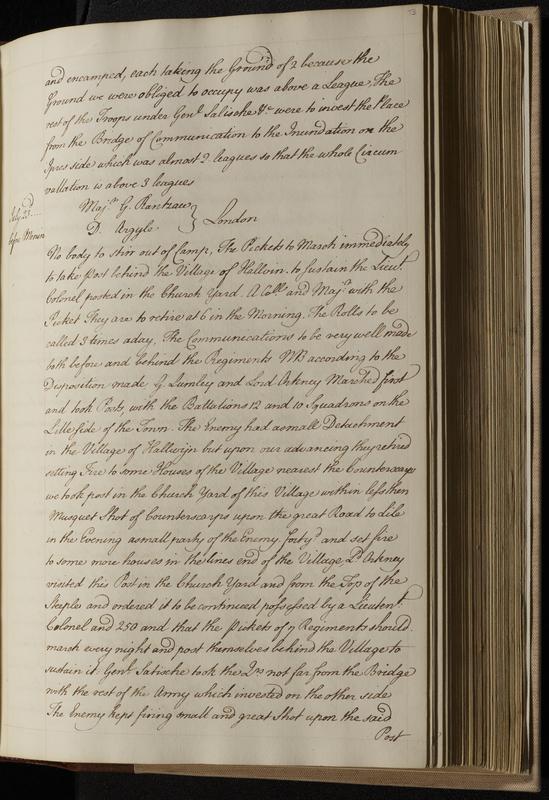 and encamped, each taking the Ground of 2 because the
Ground we were obliged to occupy was above a League, The
rest of the Troops under Genl. Salische &c were to invest the Place
from the Bridge of Communication to the Inundation on the
Ipres side which was almost 2 leagues so that the whole Circum
vallation is above 3 leagues
July 23
before Menin
Majr. G. Rantzaw
D. Argyle } London
No body to stirr out of Camp, The Pickets to March immediately
to take post behind the Village of Hallvin. to sustain the Lieut.
Colonel posted in the Church Yard. A Coll. and Majr. with the
Picket They are to retire at 6 in the Morning. The Rolls to be
called 3 times a day. The Communications to be very well made
both before and behind the Regiments NB according to the
Disposition made G Lumley and Lord Orkney Marched first
and took Posts, with the Battalions 12 and 10 Squadrons on the
Lille side of the Town. The Enemy had a small Detachment
in the Village of Hallwijn but upon our advancing they retired
setting Fire to some Houses of the Village nearest the Counterscarp
we took post in the Church Yard of this Village within less then
Musquet Shot of Counterscarps upon the great Road to Lile
in the Evening a small party of the Enemy and set fire
to some more houses in the end of the Village Ld. Orkney
visited this Post in the Church Yard and from the Top of the
Steeple and ordered it to be continued possessed by a Lieutent.
Colonel and 250 and that the Pickets of 7 Regiments should
march every night and post themselves behind the Village to
sustain it. Genl. Salische took the Qrs not far from the Bridge
with the rest of the Army which invested on the other side
The Enemy kept firing small and great Shot upon the said
Post